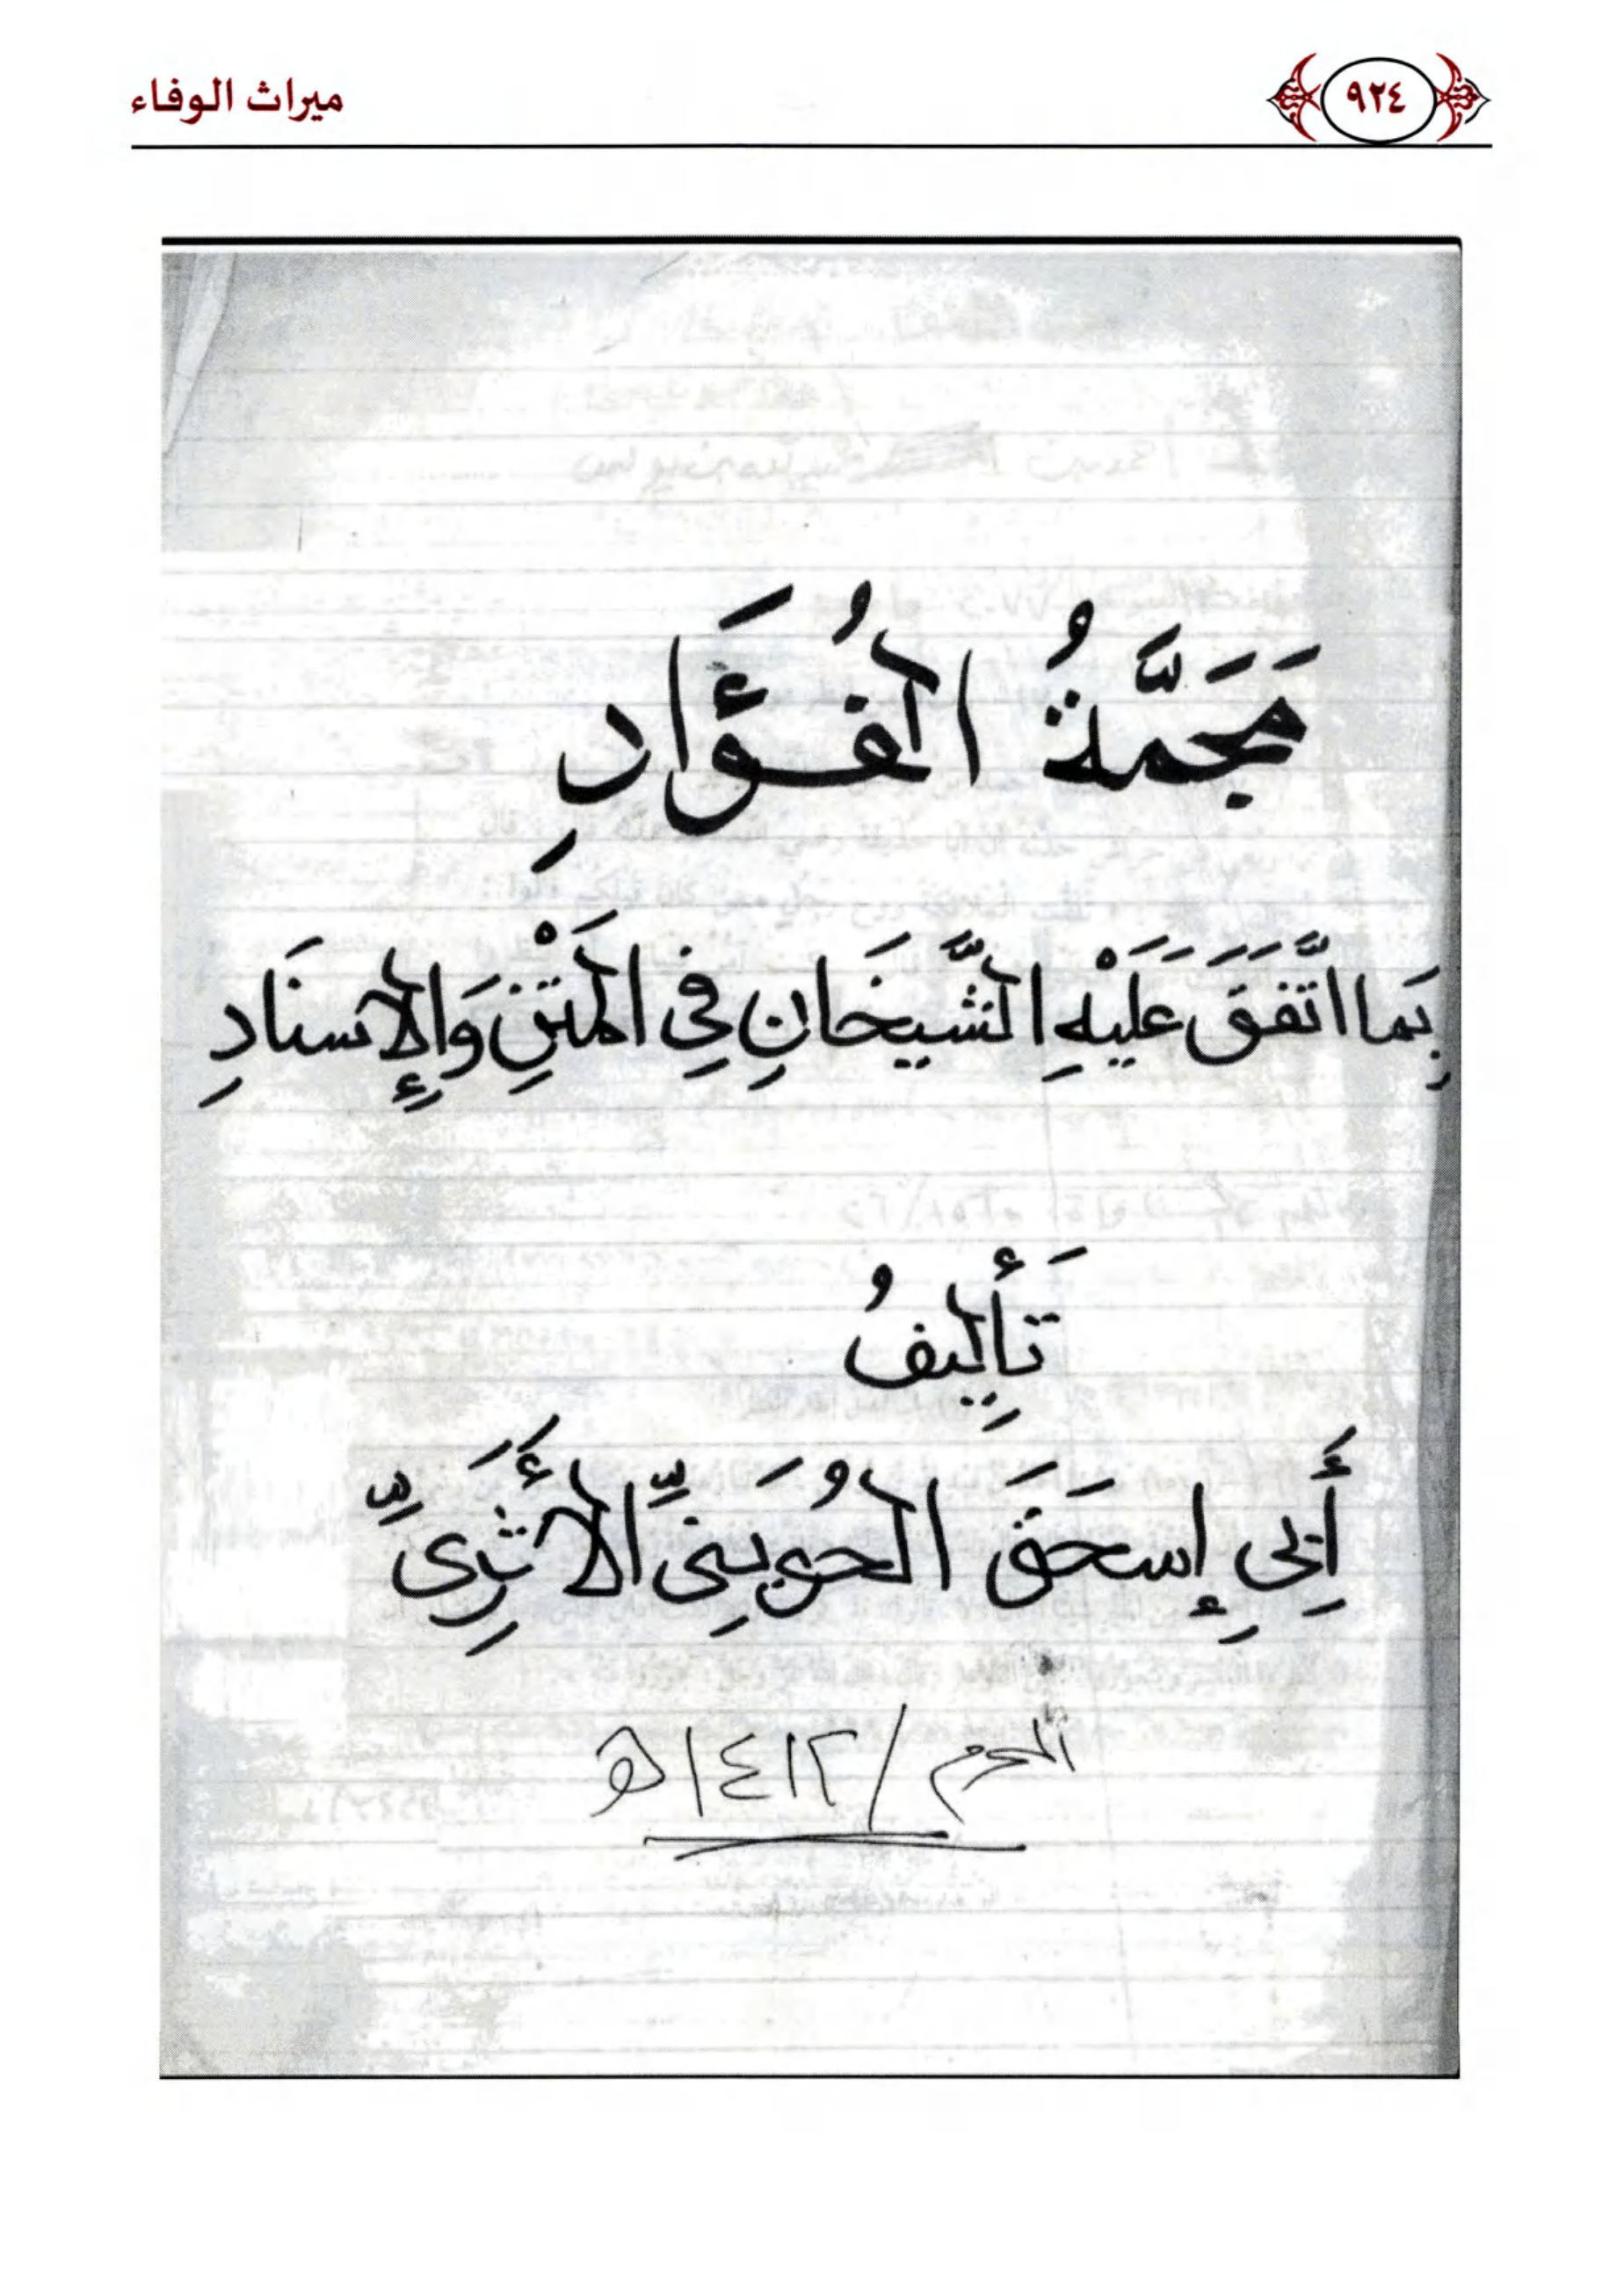 ٩٢٤ ميراث الوفاء
مَجَمَّةُ الفُؤَادِ
بِمَا اتَّفَقَ عَلَيْهِ الشَّيخَانِ فِي المَتْنِ وَالإِسنَادِ
تَأَلِيفُ
أَبِي إِسحَقَ الحُوَينِيِّ الأَثَرِيِّ
المحرم / ١٤١٢هـ